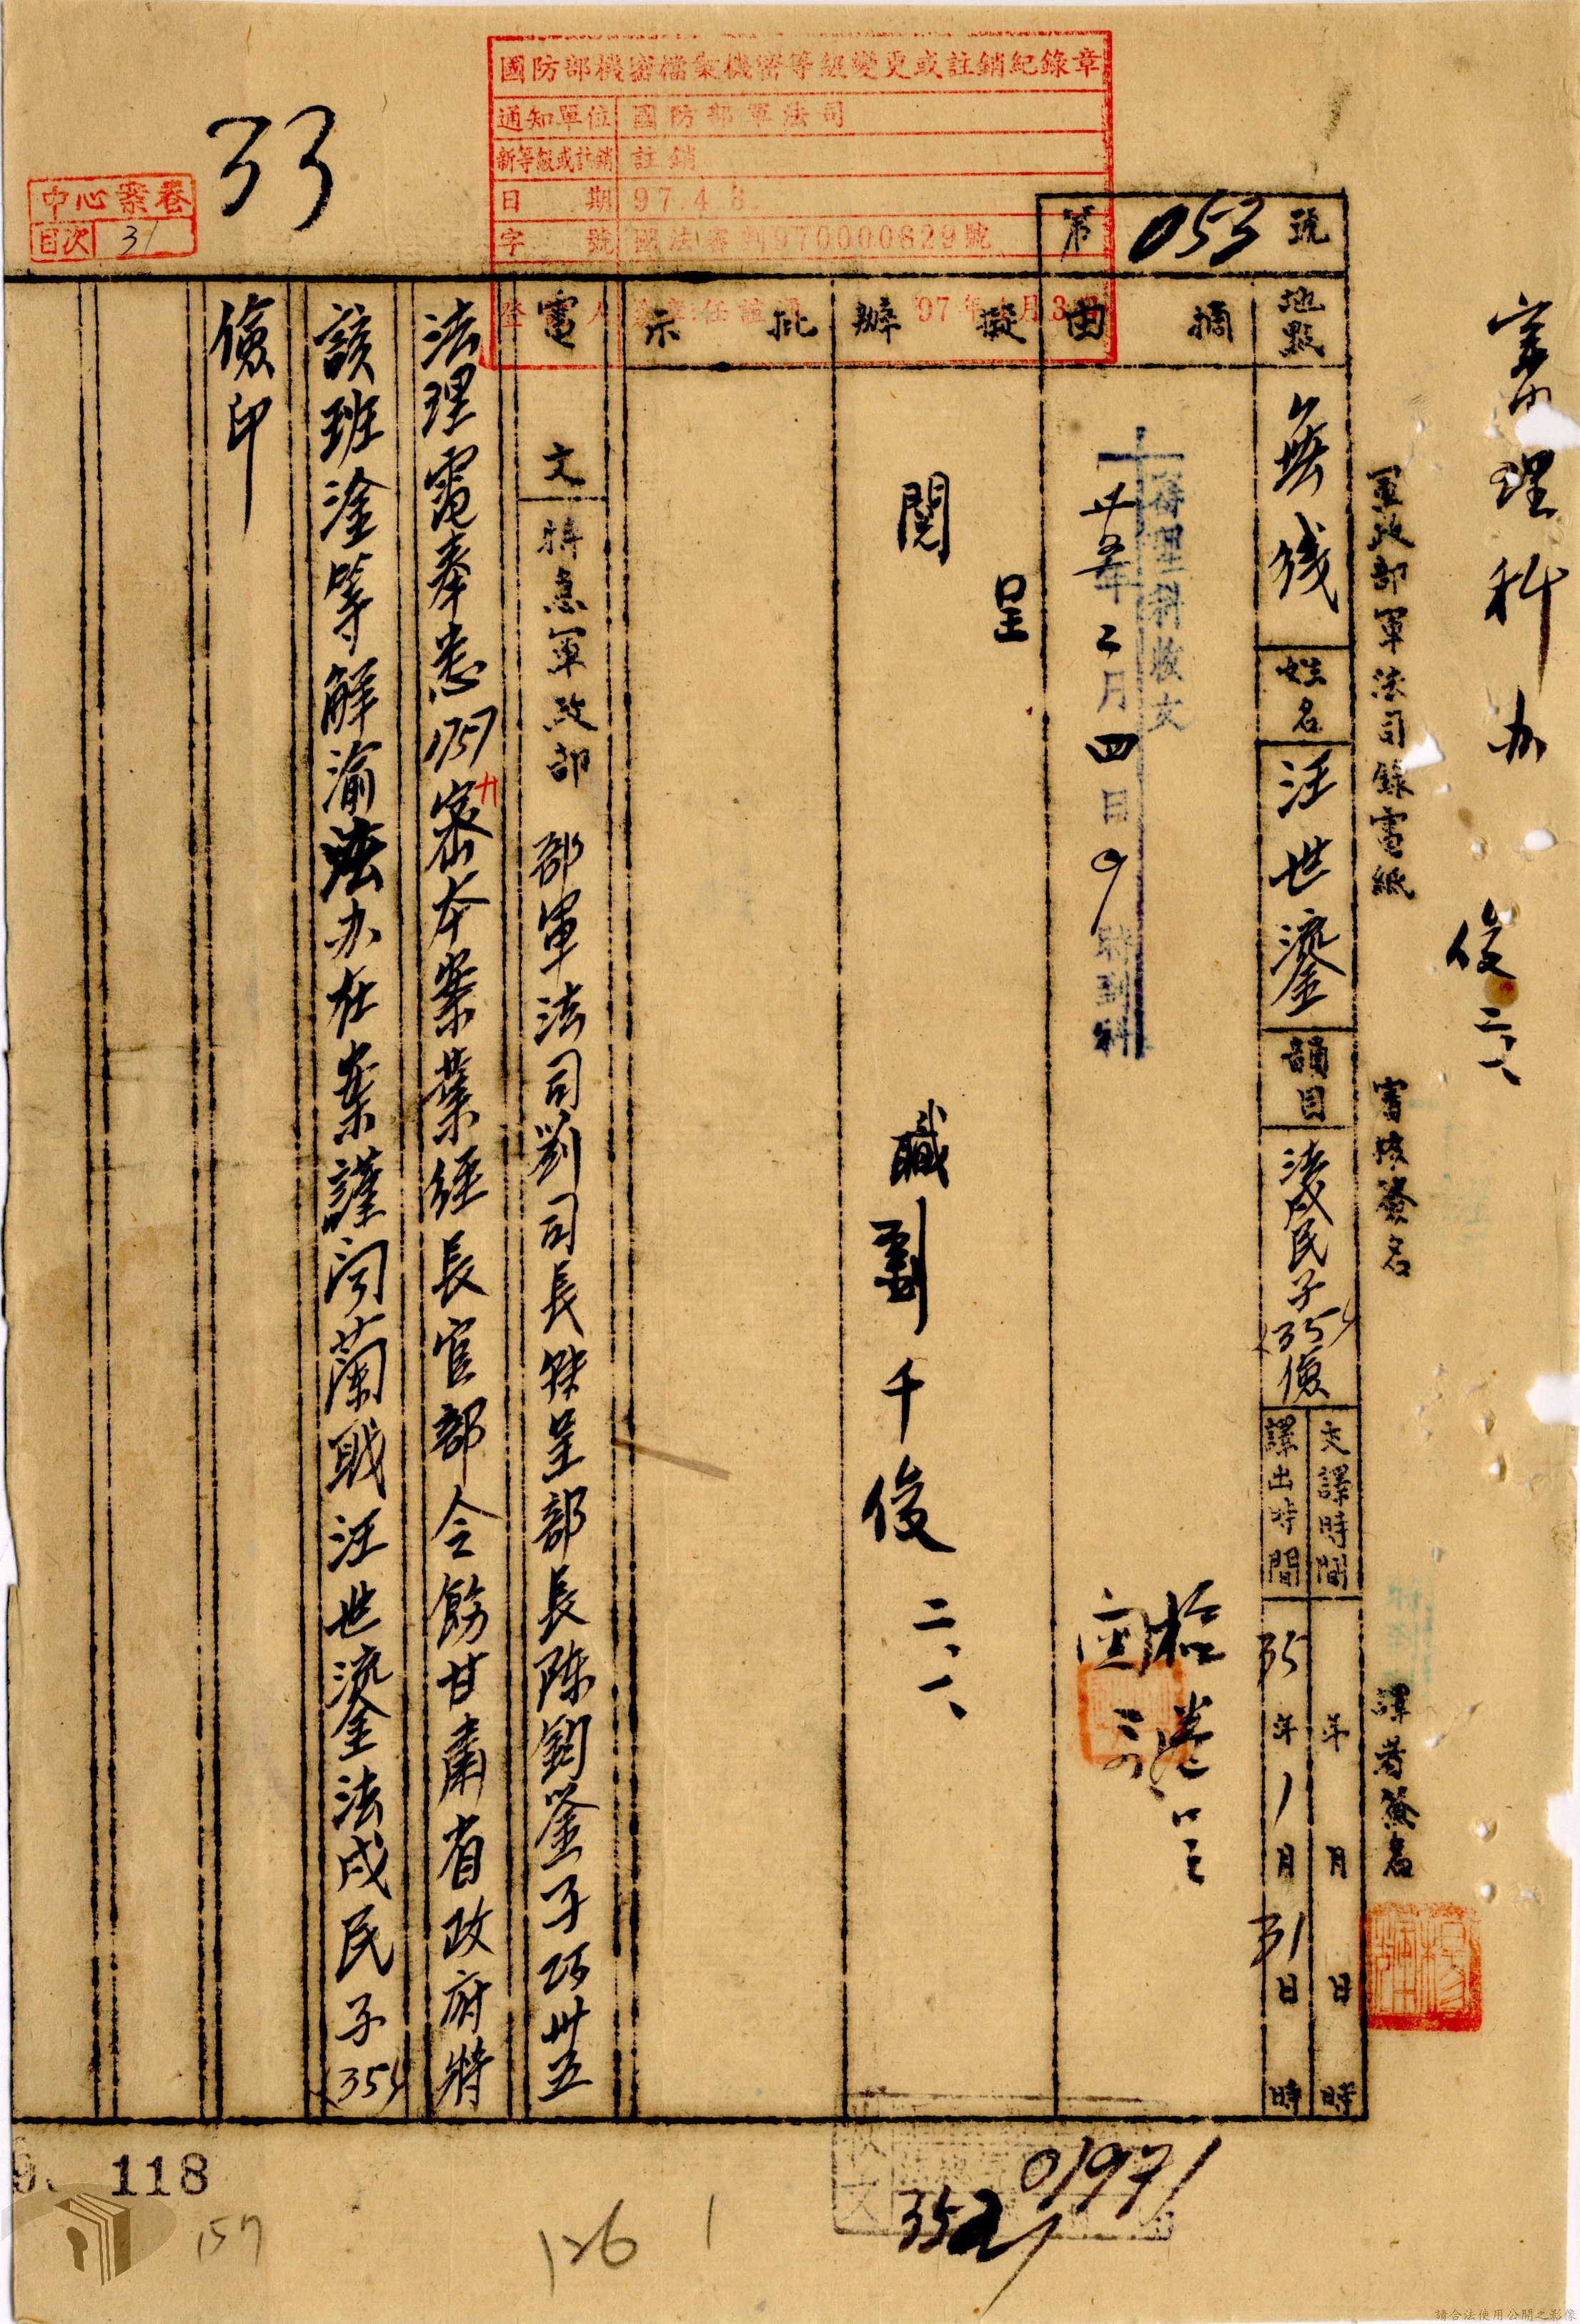 國防部機密檔案機密等級變更或註銷紀錄章
通知單位 國防部軍法司
新等級或註銷 註銷
日期 97.4.3.
字號 國法審 0970000829號
97年4月3日
33
中心案卷
目次 31
審理科办
俊 二、一、
軍政部軍法司錄電紙 審核簽名 譯者簽名
第053號
地點 無线 姓名 汪世鎏 韻目 法戌民子(35)儉
交譯時間 年 月 日 時
譯出時間 35年1月31日時
摘由
審理科收文
卅五年二月四日9時到科
擬辦
呈
閱
職劉千俊 二、一、
批示
電文 特急軍政部 部軍法司劉司長轉呈部長陈鈞鉴子巧卅五
法理電奉悉1757密本案業經長官部令飭甘肅省政府將
該班淦等解渝法办在案謹闻蘭職汪世鎏法戌民子(35)
儉印
收文
01971
352/1
118
157
126
1
請合法使用公開之影像